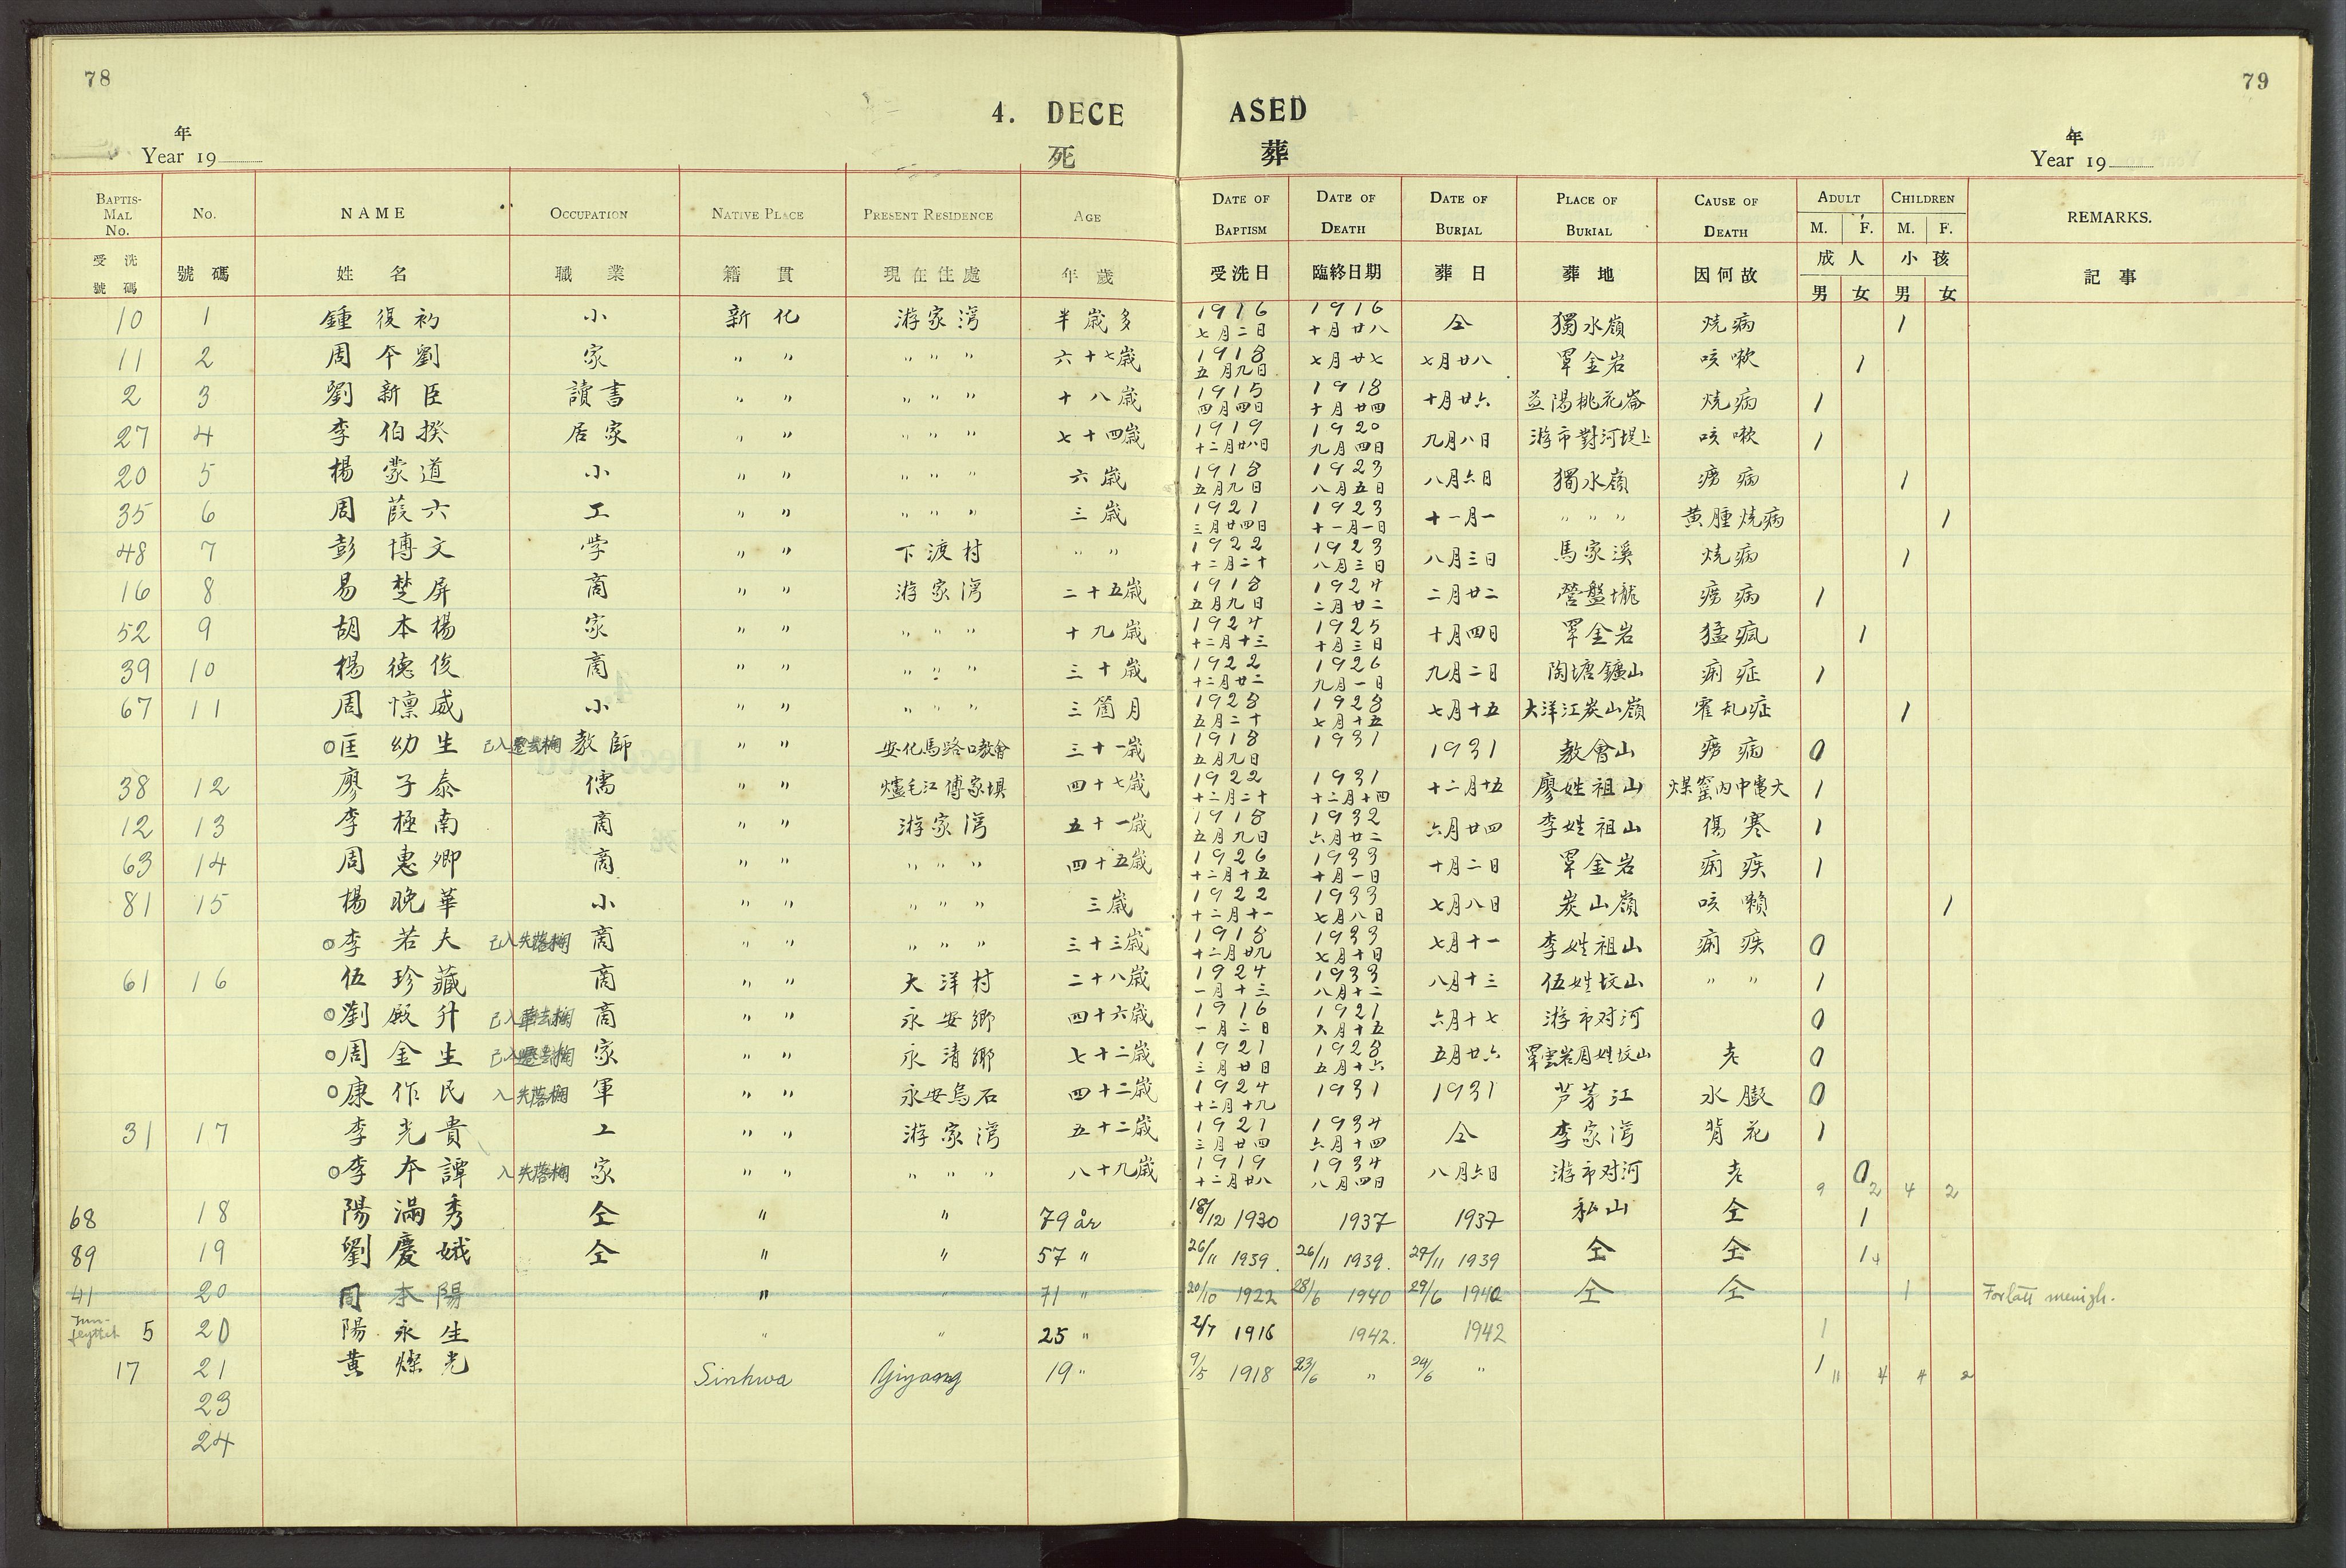 78
79
4. DECEASED
死 葬
年
Year 19
年
Year 19
BAPTISMAL No. No. NAME OCCUPATION NATIVE PLACE PRESENT RESIDENCE AGE DATE OF BAPTISM DATE OF DEATH DATE OF BURIAL PLACE OF BURIAL CAUSE OF DEATH ADULT M. F. CHILDREN M. F. REMARKS.
受洗號碼 號碼 姓名 職業 籍貫 現在住處 年歲 受洗日 臨終日期 葬日 葬地 因何故 成人 男 女 小孩 男 女 記事
10 1 鍾復初 小 新化 游家灣 半歲多 1916 七月二日 1916 十月廿八 仝 獨水嶺 燒病 1
11 2 周本劉 家 〃 〃 〃 〃 〃 六十七歲 1918 五月九日 七月廿七 七月廿八 罩金岩 咳嗽 1
2 3 劉新臣 讀書 〃 〃 〃 〃 〃 十八歲 1915 四月四日 1918 十月廿四 十月廿六 益陽桃花崙 燒病 1
27 4 李伯揆 居家 〃 〃 〃 〃 〃 七十四歲 1919 十二月廿八日 1920 九月四日 九月八日 游市對河堤上 咳嗽 1
20 5 楊蒙道 小 〃 〃 〃 〃 〃 六歲 1918 五月九日 1923 八月五日 八月六日 獨水嶺 癆病 1
35 6 周葭六 工 〃 〃 〃 〃 〃 三歲 1921 三月廿四日 1923 十一月一日 十一月一 〃 〃 〃 黄腫燒病 1
48 7 彭博文 学 〃 〃 下渡村 〃 〃 1922 十二月二十 1923 八月三日 八月三日 馬家溪 燒病 1
16 8 易楚屏 商 〃 〃 游家灣 二十五歲 1918 五月九日 1924 二月廿二 二月廿二 營盤壠 癆病 1
52 9 胡本楊 家 〃 〃 〃 〃 〃 十九歲 1924 十二月十三 1925 十月三日 十月四日 罩金岩 猛瘋 1
39 10 楊德俊 商 〃 〃 〃 〃 〃 三十歲 1922 十二月廿二 1926 九月一日 九月二日 陶塘鑛山 痢症 1
67 11 周懍威 小 〃 〃 〃 〃 〃 三箇月 1928 五月二十 1928 七月十五 七月十五 大洋江炭山嶺 霍乱症 1
○匡幼生 教師 〃 〃 安化馬路口教會 三十一歲 1918 五月九日 1931 1931 教會山 癆病 0
38 12 廖子泰 儒 〃 〃 爐毛江傅家垻 四十七歲 1922 十二月二十 1931 十二月十四 十二月十五 廖姓祖山 煤窑内中電火 1
12 13 李極南 商 〃 〃 游家灣 五十一歲 1918 五月九日 1932 六月廿二 六月廿四 李姓祖山 傷寒 1
63 14 周惠卿 商 〃 〃 〃 〃 〃 四十五歲 1926 十二月十五 1933 十月一日 十月二日 罩金岩 痢疾 1
81 15 楊晚華 小 〃 〃 〃 〃 〃 三歲 1922 十二月十一 1933 七月八日 七月八日 炭山嶺 咳嗽 1
○李若夫 已入失落欄 商 〃 〃 〃 〃 〃 三十三歲 1918 十二月廿九 1933 七月十日 七月十一 李姓祖山 痢疾 0
61 16 伍珍藏 商 〃 〃 大洋村 二十八歲 1924 一月十三 1933 八月十二 八月十三 伍姓坟山 〃 〃 1
○劉殿升 商 〃 〃 永安鄉 四十六歲 1916 一月二日 1921 六月十五 六月十七 游市对河 0
○周金生 家 〃 〃 永清鄉 七十二歲 1921 三月廿日 1928 五月十六 五月廿六 罩雲岩周姓坟山 老 0
○康作民 入失落欄 軍 〃 〃 永安烏石 四十二歲 1924 十二月十九 1931 1931 芦茅江 水膨 0
31 17 李光貴 工 〃 〃 游家灣 五十二歲 1921 三月廿四 1934 六月十四 仝 李家灣 背花 1
○李本譚 入失落欄 家 〃 〃 〃 〃 〃 八十九歲 1919 十二月廿八 1934 八月四日 八月六日 游市对河 老 0
9 2 4 2
68 18 陽滿秀 仝 〃 〃 79 år 18/12 1930 1937 1937 私山 仝 1
89 19 劉慶娥 仝 〃 〃 57 〃 26/11 1939. 26/11 1939. 29/11 1939 仝 仝 1 4
41 20 周本陽 〃 〃 71 〃 20/10 1922 28/6 1940 29/6 1940 仝 仝 1 Forlåtit menigh.
5 20 陽永生 〃 〃 25 〃 2/7 1916 1942. 1942 1
17 21 黄燦光 Sinhwa Yiyang 19 〃 9/5 1918 23/6 〃 24/6 〃 1 11 4 4 2
23
24